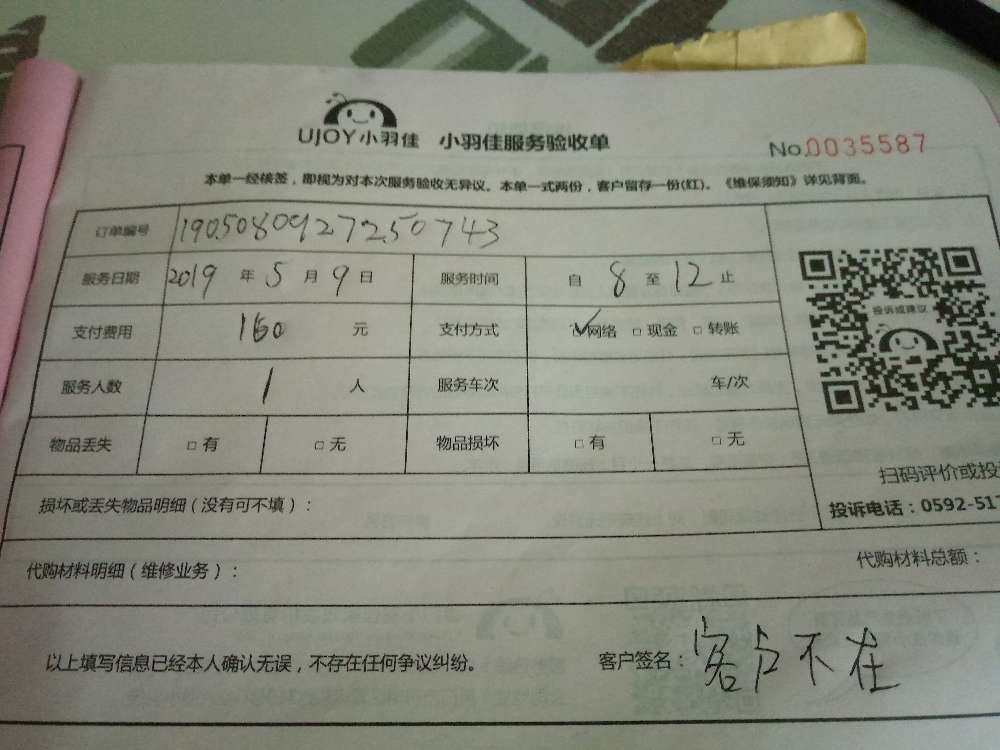 UJOY小羽佳 小羽佳服务验收单
No.0035587
本单一经核签，即视为对本次服务验收无异议。本单一式两份，客户留存一份(红)。《维保须知》详见背面。
订单编号 1905080927250743
服务日期 2019 年 5 月 9 日 服务时间 自 8 至 12 止
支付费用 160 元 支付方式 ☑网络 □现金 □转账
投诉或建议
服务人数 1 人 服务车次 车/次
物品丢失 □有 □无 物品损坏 □有 □无
扫码评价或投
损坏或丢失物品明细（没有可不填）：
投诉电话：0592-51
代购材料明细（维修业务）： 代购材料总额：
以上填写信息已经本人确认无误，不存在任何争议纠纷。 客户签名：客户不在